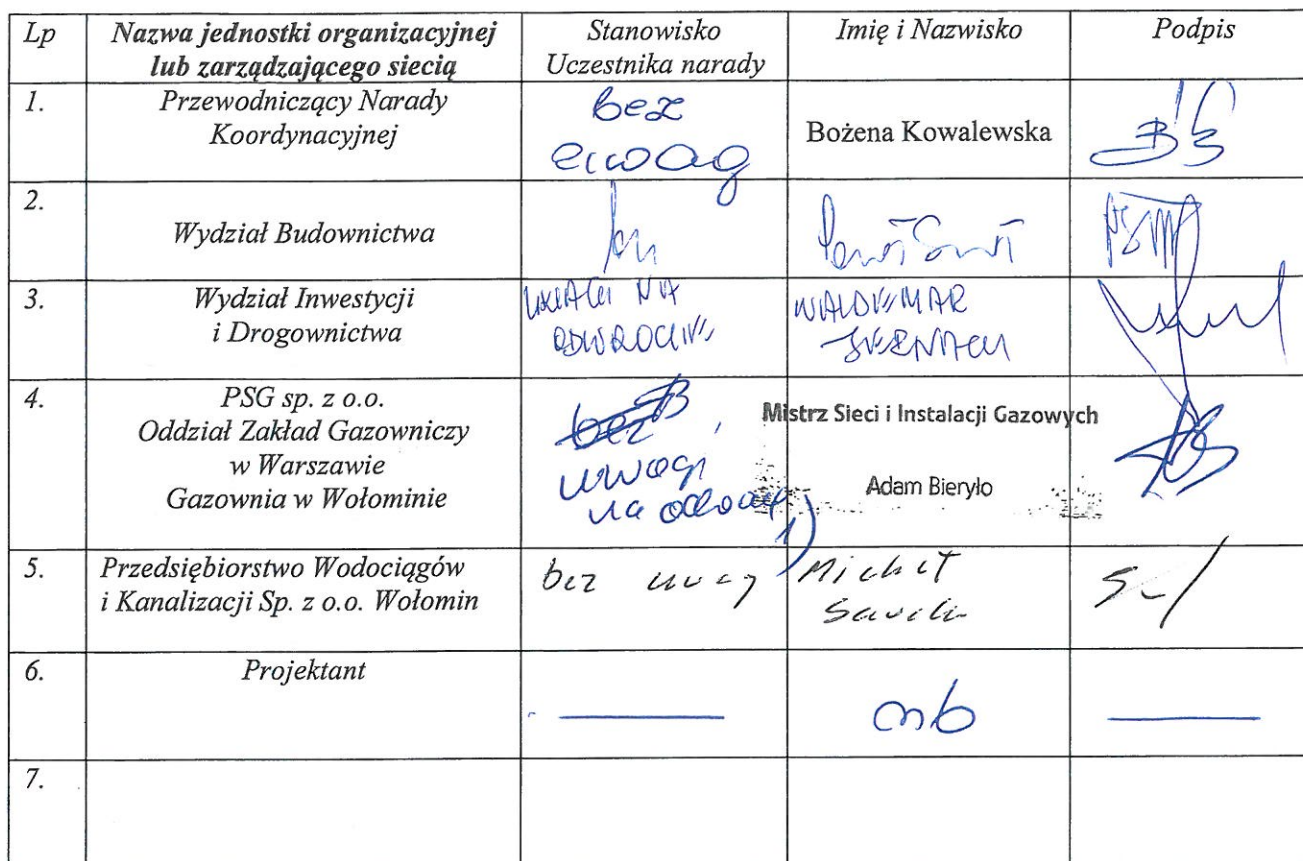 Lp
Nazwa jednostki organizacyjnej
lub zarządzającego siecią
Stanowisko
Uczestnika narady
Imię i Nazwisko
Podpis
1.
Przewodniczący Narady
Koordynacyjnej
bez
uwag
Bożena Kowalewska
2.
Wydział Budownictwa
3.
Wydział Inwestycji
i Drogownictwa
UWAGI NA
ODWROCIE
WALDEMAR
4.
PSG sp. z o.o.
Oddział Zakład Gazowniczy
w Warszawie
Gazownia w Wołominie
bez
uwagi
na
1)
Mistrz Sieci i Instalacji Gazowych
Adam Bieryło
5.
Przedsiębiorstwo Wodociągów
i Kanalizacji Sp. z o.o. Wołomin
bez uwag
Michał
6.
Projektant
nb
7.